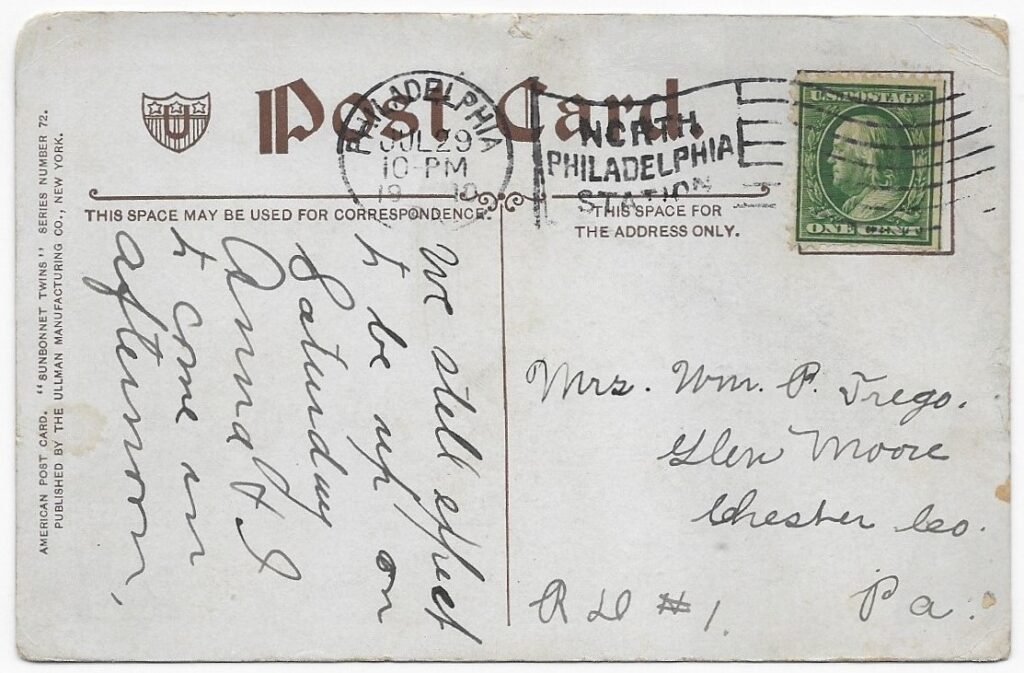 Post Card.
PHILADELPHIA
JUL 29
10-PM
1910
NORTH
PHILADELPHIA
STATION
U.S. POSTAGE
ONE CENT
U
THIS SPACE MAY BE USED FOR CORRESPONDENCE
THIS SPACE FOR
THE ADDRESS ONLY.
AMERICAN POST CARD. "SUNBONNET TWINS" SERIES NUMBER 72.
PUBLISHED BY THE ULLMAN MANUFACTURING CO., NEW YORK.
We still expect
to be up on
Saturday
Anna & I
to come in
afternoon.
Mrs. Wm. P. Trego.
Glen Moore
Chester Co.
R D #1.
Pa.